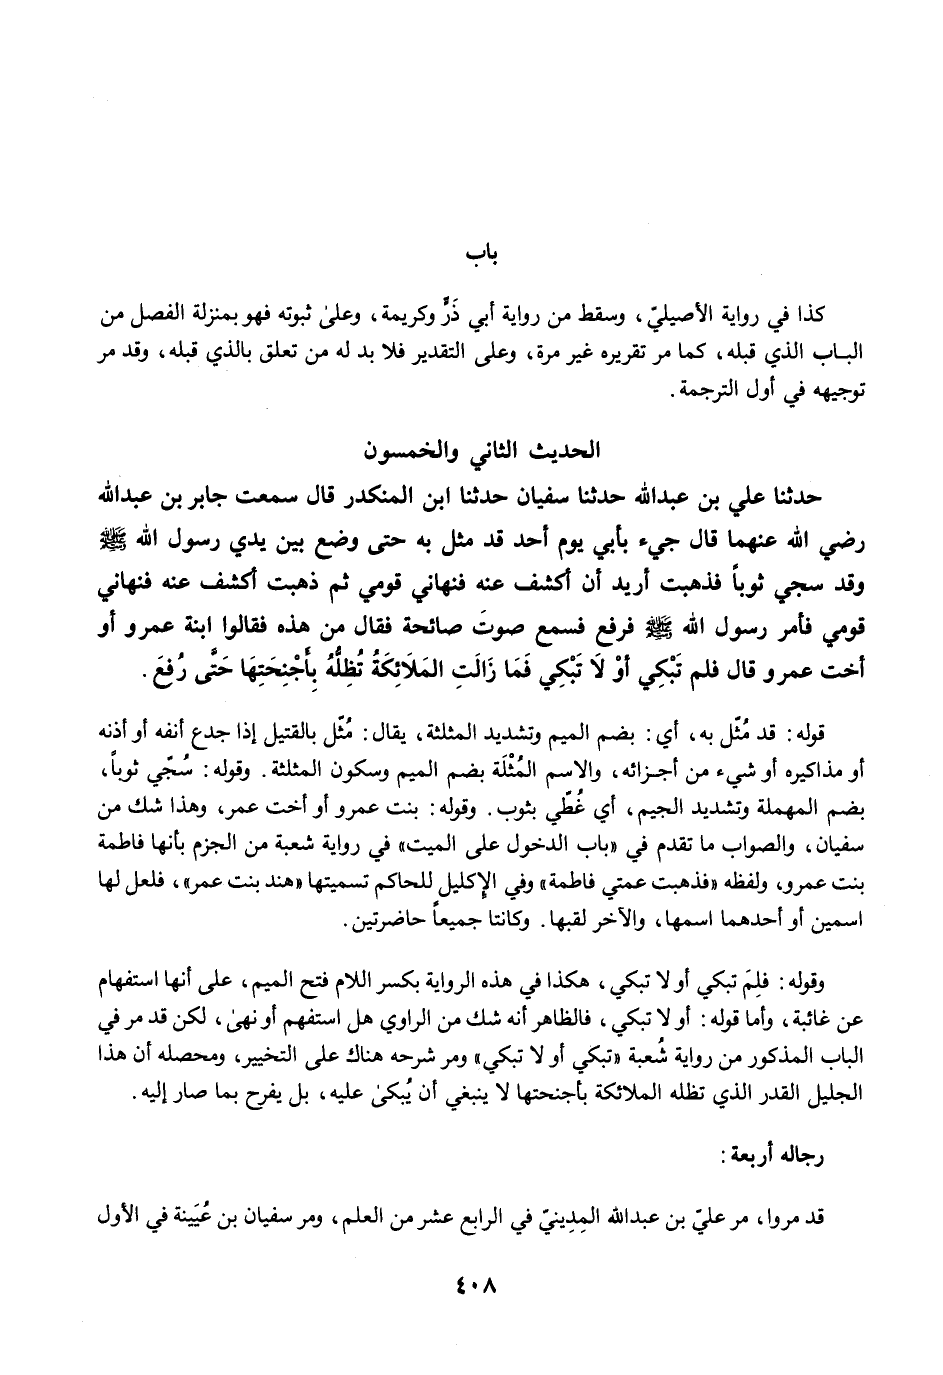 باب
كذا في رواية الأصيليّ، وسقط من رواية أبي ذَرٍّ وكريمة، وعلىٰ ثبوته فهو بمنزلة الفصل من
الباب الذي قبله، كما مر تقريره غير مرة، وعلى التقدير فلا بد له من تعلق بالذي قبله، وقد مر
توجيهه في أول الترجمة.
الحديث الثاني والخمسون
حدثنا علي بن عبدالله حدثنا سفيان حدثنا ابن المنكدر قال سمعت جابر بن عبدالله
رضي الله عنهما قال جيء بأبي يوم أحد قد مثل به حتى وضع بين يدي رسول الله ﷺ
وقد سجي ثوباً فذهبت أريد أن أكشف عنه فنهاني قومي ثم ذهبت أكشف عنه فنهاني
قومي فأمر رسول الله ﷺ فرفع فسمع صوتَ صائحة فقال من هذه فقالوا ابنة عمرو أو
أخت عمرو قال فلم تَبْكِي أوْ لَا تَبْكِي فَمَا زَالَتِ المَلَائِكَةُ تُظِلُّهُ بِأَجْنِحَتِهَا حَتَّى رُفِعَ.
قوله: قد مُثّل به، أي: بضم الميم وتشديد المثلثة، يقال: مُثّل بالقتيل إذا جدع أنفه أو أذنه
أو مذاكيره أو شيء من أجزائه، والاسم المُثْلَة بضم الميم وسكون المثلثة. وقوله: سُجّي ثوباً،
بضم المهملة وتشديد الجيم، أي غُطّي بثوب. وقوله: بنت عمرو أو أخت عمر، وهذا شك من
سفيان، والصواب ما تقدم في «باب الدخول على الميت» في رواية شعبة من الجزم بأنها فاطمة
بنت عمرو، ولفظه «فذهبت عمتي فاطمة» وفي الإكليل للحاكم تسميتها «هند بنت عمر»، فلعل لها
اسمين أو أحدهما اسمها، والآخر لقبها. وكانتا جميعاً حاضرتين.
وقوله: فلِمَ تبكي أو لا تبكي، هكذا في هذه الرواية بكسر اللام فتح الميم، على أنها استفهام
عن غائبة، وأما قوله: أو لا تبكي، فالظاهر أنه شك من الراوي هل استفهم أو نهىٰ، لكن قد مر في
الباب المذكور من رواية شُعبة «تبكي أو لا تبكي» ومر شرحه هناك على التخيير، ومحصله أن هذا
الجليل القدر الذي تظله الملائكة بأجنحتها لا ينبغي أن يُبكىٰ عليه، بل يفرح بما صار إليه.
رجاله أربعة:
قد مروا، مر عليّ بن عبدالله المِدِينيّ في الرابع عشر من العلم، ومر سفيان بن عُيَينة في الأول
٤٠٨